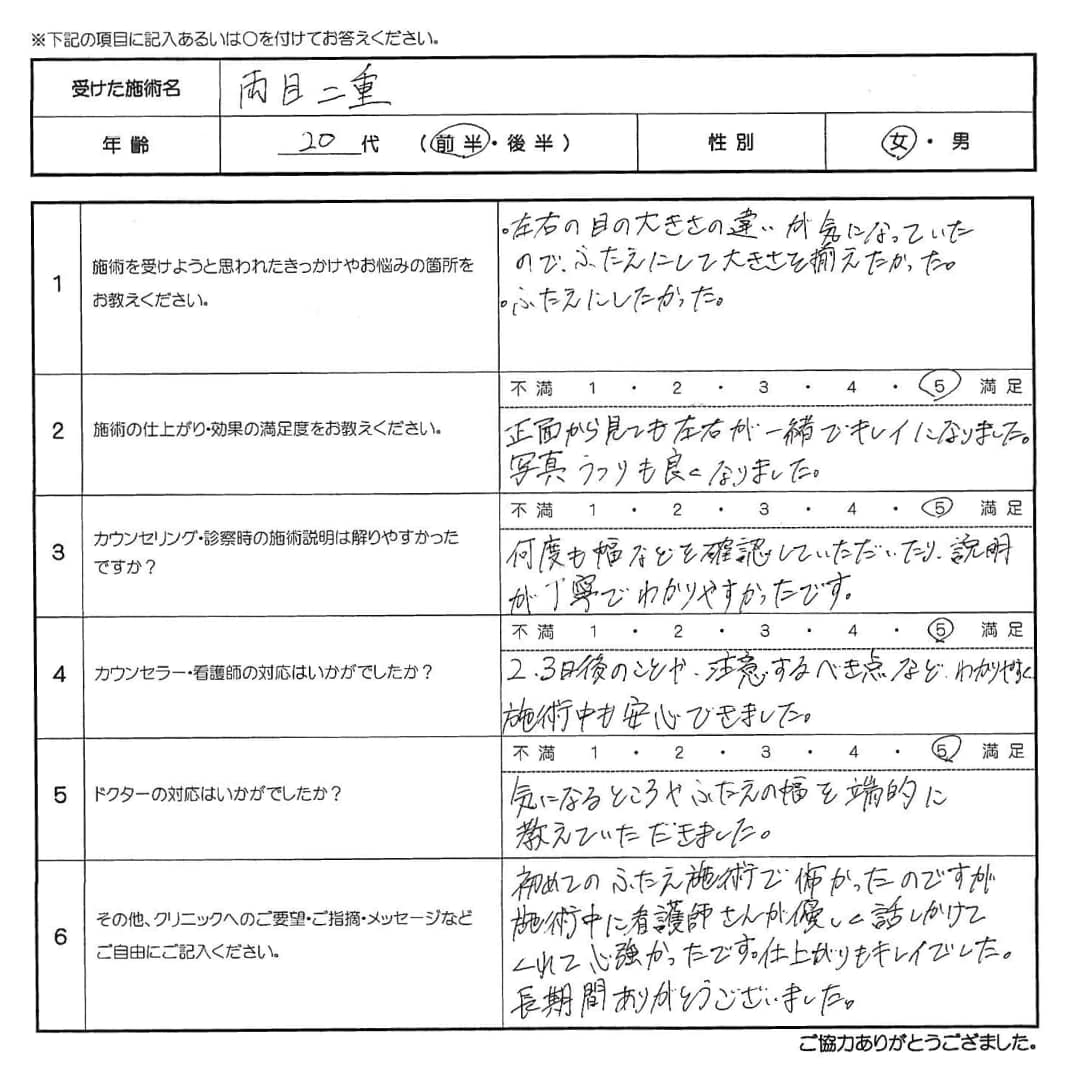 ※下記の項目に記入あるいは〇を付けてお答えください。
受けた施術名 両目二重
年齢 20代 (前半・後半) 性別 女・男
1 施術を受けようと思われたきっかけやお悩みの箇所を
お教えください。
・左右の目の大きさの違いが気になっていた
ので、ふたえにして大きさを揃えたかった。
・ふたえにしたかった。
2 施術の仕上がり・効果の満足度をお教えください。
不満 1・2・3・4・5 満足
正面から見ても左右が一緒でキレイになりました。
写真うつりも良くなりました。
3 カウンセリング・診察時の施術説明は解りやすかった
ですか？
不満 1・2・3・4・5 満足
何度も幅などを確認していただいたり、説明
が丁寧でわかりやすかったです。
4 カウンセラー・看護師の対応はいかがでしたか？
不満 1・2・3・4・5 満足
2、3日後のことや、注意するべき点など、わかりやすく
施術中も安心できました。
5 ドクターの対応はいかがでしたか？
不満 1・2・3・4・5 満足
気になるところやふたえの幅を端的に
教えていただきました。
6 その他、クリニックへのご要望・ご指摘・メッセージなど
ご自由にご記入ください。
初めてのふたえ施術で怖かったのですが
施術中に看護師さんが優しく話しかけて
くれて心強かったです。仕上がりもキレイでした。
長期間ありがとうございました。
ご協力ありがとうござました。